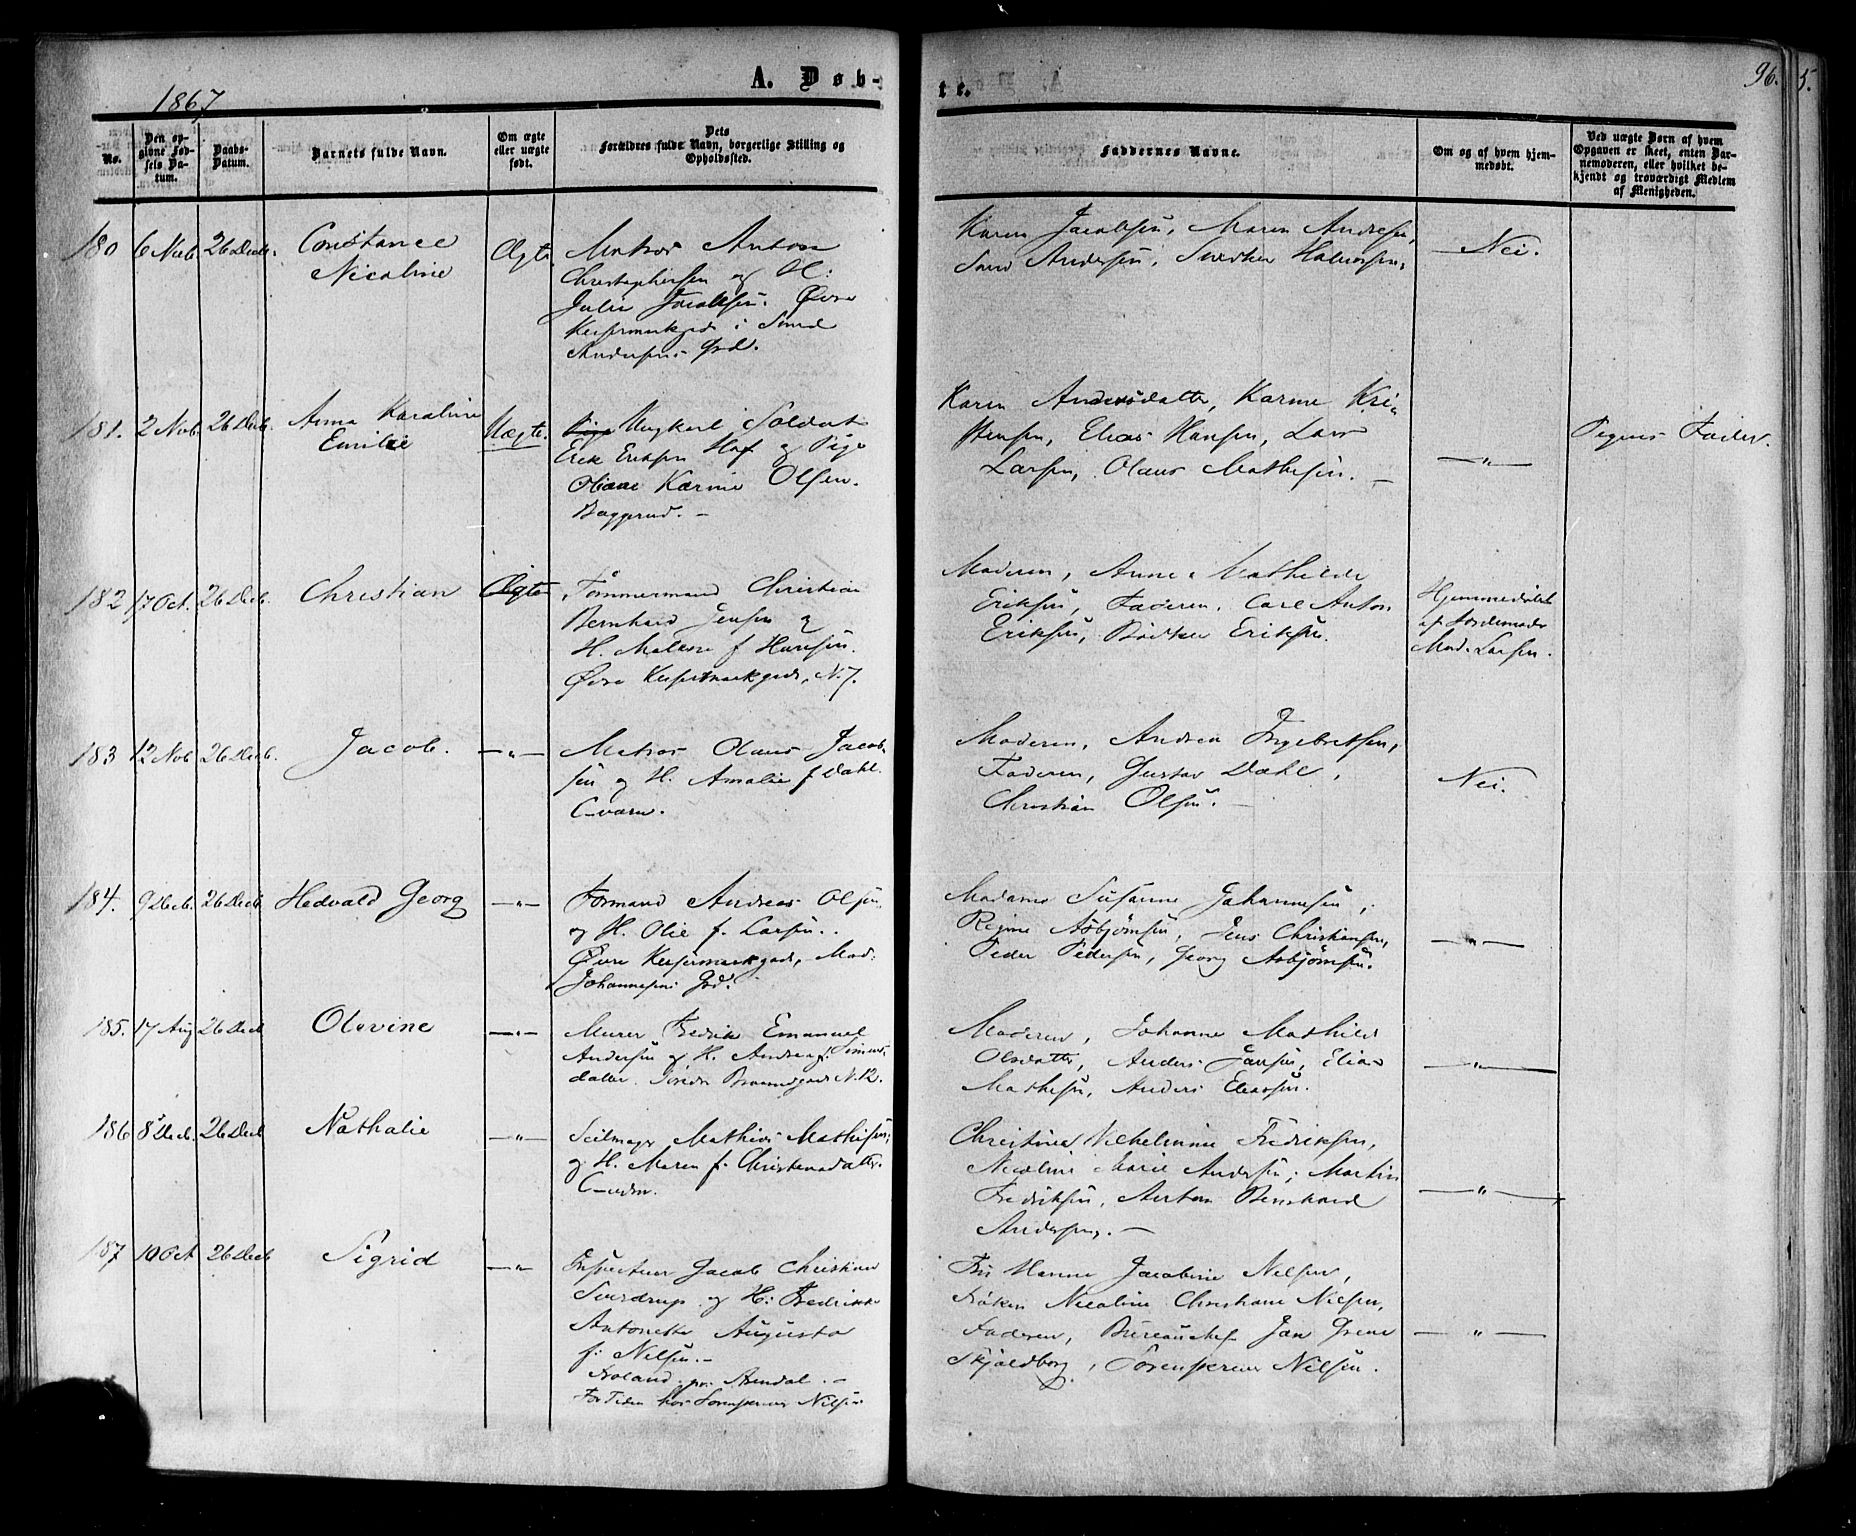 1867
A. Døb-
te.
96.
5.
No.
Den op-
givne Fød-
sels Da-
tum.
Daabs-
Datum.
Barnets fulde Navn.
Om ægte
eller uægte
født.
Dets
Forældres fulde Navn, borgerlige Stilling og
Opholdssted.
Faddernes Navne.
Om og af hvem hjem-
medøbt.
Ved uægte Børn af hvem
Opgaven er skeet, enten Bar-
nemoderen, eller hvilket be-
kjendt og troværdigt Medlem
af Menigheden.
180 6 Nvb. 26 Decb. Constance
Nicoline
Ægte
Matros Anton
Christophersen og H:
Julie Jacobsen. Øvre
i Svend
Andersens Grd.
Karen Jacobsen, Maren Andresen,
Svend Andersen, Halvorsen.
Nei.
181. 2 Nvb. 26 Decb. Anna Karoline
Emilie
Uægte.
Ungkarl, Soldat
Erik Eriksen og Pige
Oliane Karine Olsen.
Baggerud. –
Karen Andersdatter, Karine Kri-
stensen, Elias Hansen, Lars
Larsen, Olaus Mathesen. –
– " –
Pigens Fader.
182 17 Oct. 26 Decb. Christian
Ægte
Tømmermand Christian
Bernhard Jensen og
H. Malene f Hansen.
Øvre N. 7.
Moderen, Anne Mathilde
Eriksen, Faderen, Carl Anton
Eriksen, Bødker Eriksen.
Hjemmedøbt
af Jordemoder
Mad. Larsen.
183 12 Nvb. 26 Decb. Jacob.
– " –
Matros Olaus Jacob-
sen og H. Amalie f Dahl.
Moderen, Andrea Ingebretsen,
Faderen, Gustav Dahl,
Christian Olsen. –
Nei.
184. 9 Decb. 26 Decb. Hedvald Georg
– " –
Formand Andreas Olsen
og H. Olie f. Larsen.
Øvre Mad.
Johannesens Grd.
Madame Susanne Johannesen,
Regine Asbjørnsen, Jens Christiansen,
Peder Pedersen, Georg Asbjørnsen.
– " –
185. 17 Aug 26 Decb Olevine
– " –
Murer Fredrik Emanuel
Andersen og H. Andrea f. Simens-
datter. N. 12.
Moderen, Johanne Mathilde
Olsdatter, Anders Jansen, Elias
Mathesen, Anders Eliassen.
– " –
186 8 Decb. 26 Decb Nathalie
– " –
Seilmager Mathias Mathisen,
og H. Maren f. Christensdatter.
Christine Vilhelmine Fredriksen,
Nicoline Marie Andersen, Martin
Fredriksen, Anton Bernhard
Andersen. –
– " –
187 10 Oct 26 Decb Sigrid
– " –
Inspecteur Jacob Christian
Sverdrup og H: Fredrikke
Antonette Augusta
f. Nilsen. –
Froland pr. Arendal. –
For Tiden hos Sorenskriver Nilsen
Fru Hanne Jacobine Nilsen,
Frøken Nicoline Christiane Nilsen,
Faderen, Bureauchef Jan Greve
Skjoldborg, Sorenskriver Nilsen.
– " –